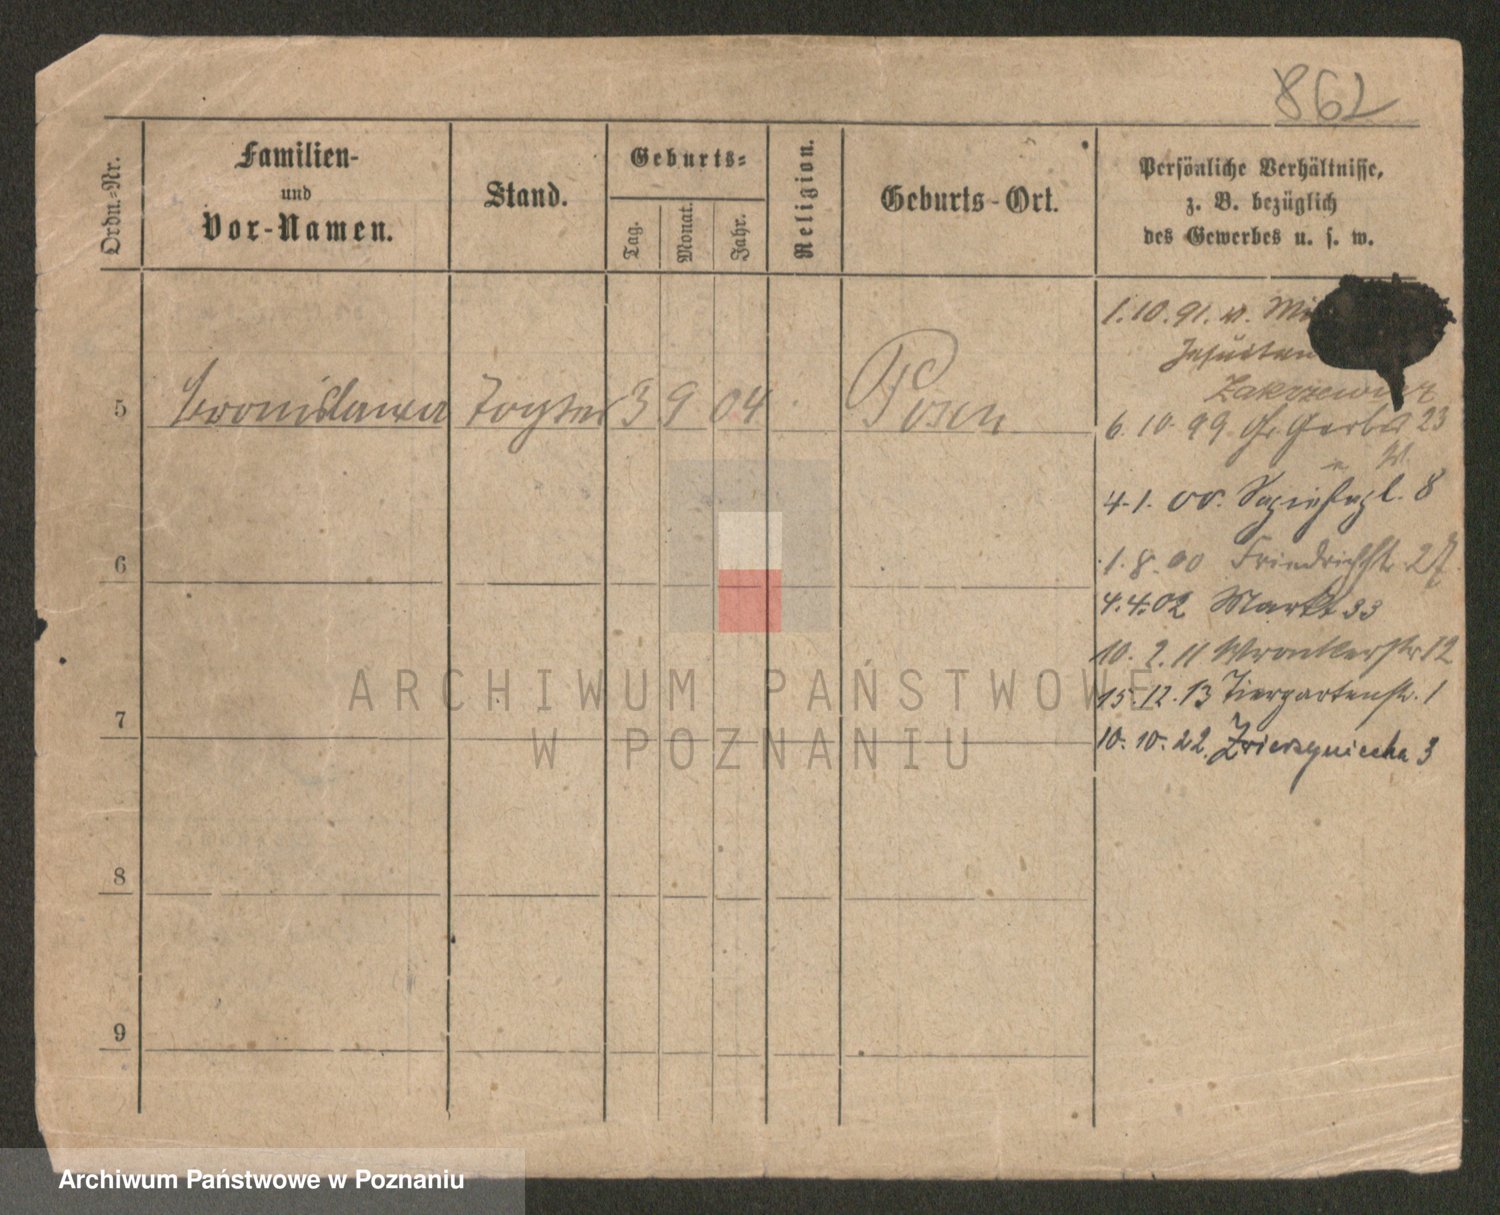 862
Ordn.-Nr.
Familien-
und
Vor-Namen.
Stand.
Geburts-
Tag.
Monat.
Jahr.
Religion.
Geburts-Ort.
Persönliche Verhältnisse,
z. B. bezüglich
des Gewerbes u. s. w.
1.10.91. v.
Jesuiten
Zakrzewicz
5 Bronislawa Tochter 3 9 04 Posen
6.10.99 Gr. Gerbst 23
W.
4.1.00. Sapiehapl. 8
6
1.8.00 Friedrichstr 27
4.4.02 Markt 33
10.2.11 Wronkerstr 12
ARCHIWUM PAŃSTWOWE
15.12.13 Tiergartenstr. 1
7
10.10.22. Zwierzyniecka 3
W POZNANIU
8
9
Archiwum Państwowe w Poznaniu